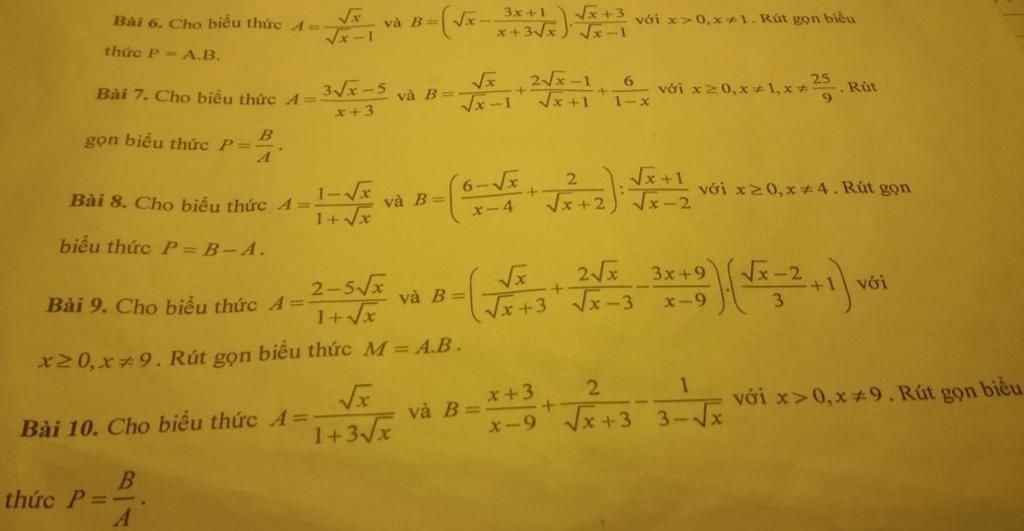 Bài 6. Cho biểu thức A = √x/(√x−1) và B = (√x − (3x+1)/(x+3√x)) . (√x+3)/(√x−1) với x > 0, x ≠ 1. Rút gọn biểu
thức P = A.B.
Bài 7. Cho biểu thức A = (3√x−5)/(x+3) và B = √x/(√x−1) + (2√x−1)/(√x+1) + 6/(1−x) với x ≥ 0, x ≠ 1, x ≠ 25/9. Rút
gọn biểu thức P = B/A.
Bài 8. Cho biểu thức A = (1−√x)/(1+√x) và B = ((6−√x)/(x−4) + 2/(√x+2)) : (√x+1)/(√x−2) với x ≥ 0, x ≠ 4. Rút gọn
biểu thức P = B − A.
Bài 9. Cho biểu thức A = (2−5√x)/(1+√x) và B = (√x/(√x+3) + 2√x/(√x−3) − (3x+9)/(x−9)) . ((√x−2)/3 + 1) với
x ≥ 0, x ≠ 9. Rút gọn biểu thức M = A.B.
Bài 10. Cho biểu thức A = √x/(1+3√x) và B = (x+3)/(x−9) + 2/(√x+3) − 1/(3−√x) với x > 0, x ≠ 9. Rút gọn biểu
thức P = B/A.